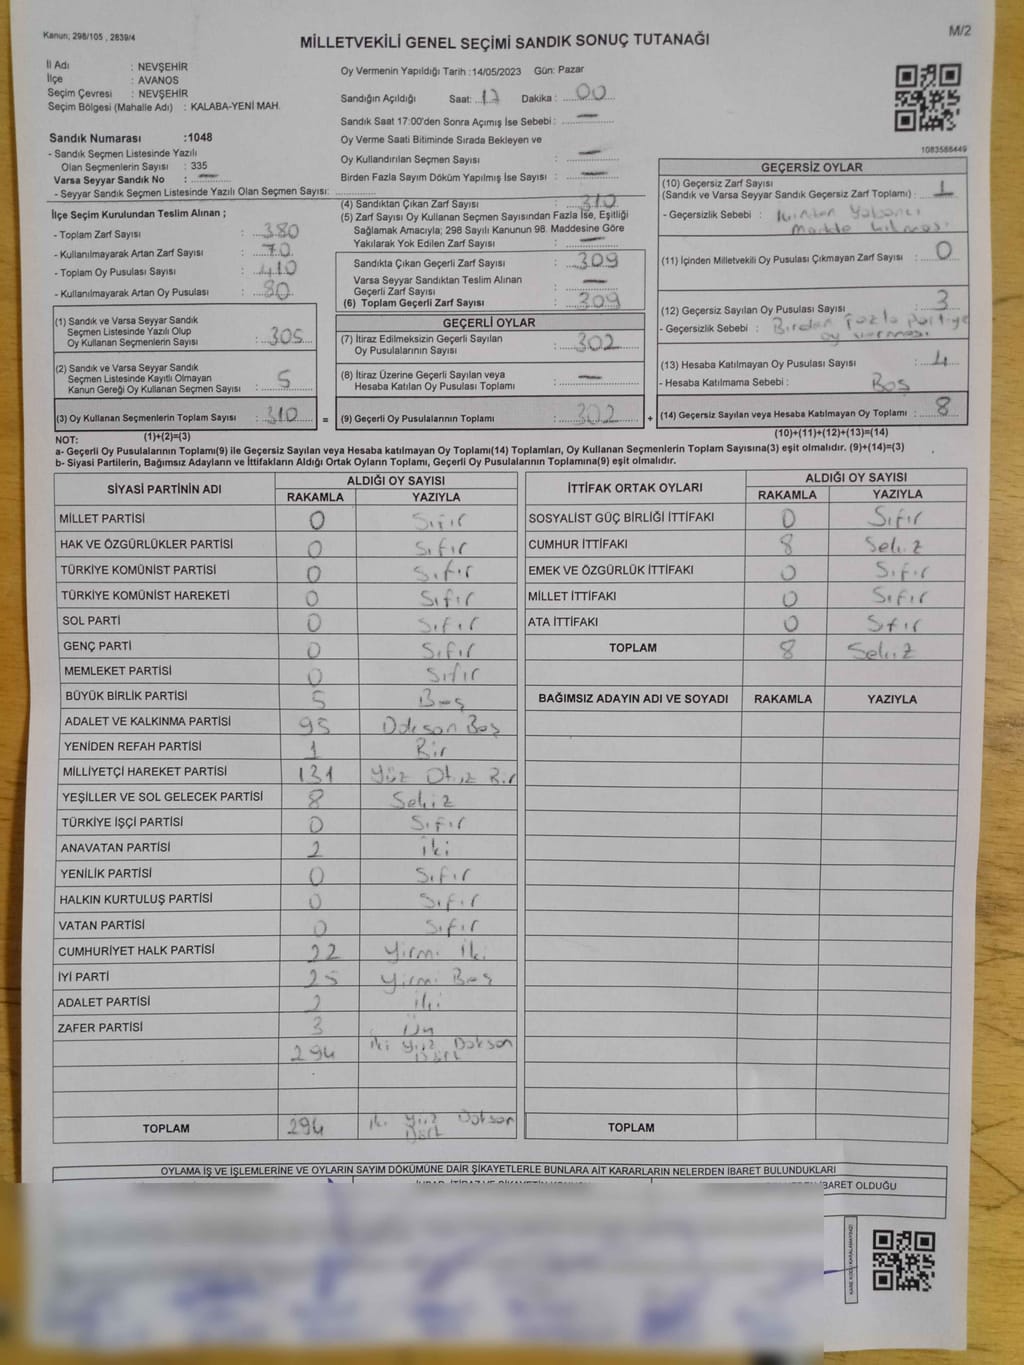 Kanun; 298/105 , 2839/4
M/2
MİLLETVEKİLİ GENEL SEÇİMİ SANDIK SONUÇ TUTANAĞI
İl Adı : NEVŞEHİR
İlçe : AVANOS
Seçim Çevresi : NEVŞEHİR
Seçim Bölgesi (Mahalle Adı) : KALABA-YENİ MAH.
Sandık Numarası :1048
- Sandık Seçmen Listesinde Yazılı
Olan Seçmenlerin Sayısı : 335
Varsa Seyyar Sandık No : —
- Seyyar Sandık Seçmen Listesinde Yazılı Olan Seçmen Sayısı:
Oy Vermenin Yapıldığı Tarih :14/05/2023 Gün: Pazar
Sandığın Açıldığı Saat: 17 Dakika : 00
Sandık Saat 17:00'den Sonra Açımış İse Sebebi : —
Oy Verme Saati Bitiminde Sırada Bekleyen ve
Oy Kullandırılan Seçmen Sayısı : —
Birden Fazla Sayım Döküm Yapılmış İse Sayısı : —
1083586449
İlçe Seçim Kurulundan Teslim Alınan ;
- Toplam Zarf Sayısı : 380
- Kullanılmayarak Artan Zarf Sayısı : 70
- Toplam Oy Pusulası Sayısı : 410
- Kullanılmayarak Artan Oy Pusulası : 80
(1) Sandık ve Varsa Seyyar Sandık
Seçmen Listesinde Yazılı Olup
Oy Kullanan Seçmenlerin Sayısı : 305
(2) Sandık ve Varsa Seyyar Sandık
Seçmen Listesinde Kayıtlı Olmayan
Kanun Gereği Oy Kullanan Seçmen Sayısı : 5
(3) Oy Kullanan Seçmenlerin Toplam Sayısı : 310 =
(4) Sandıktan Çıkan Zarf Sayısı : 310
(5) Zarf Sayısı Oy Kullanan Seçmen Sayısından Fazla İse, Eşitliği
Sağlamak Amacıyla; 298 Sayılı Kanunun 98. Maddesine Göre
Yakılarak Yok Edilen Zarf Sayısı : —
Sandıkta Çıkan Geçerli Zarf Sayısı : 309
Varsa Seyyar Sandıktan Teslim Alınan
Geçerli Zarf Sayısı : —
(6) Toplam Geçerli Zarf Sayısı : 309
GEÇERLİ OYLAR
(7) İtiraz Edilmeksizin Geçerli Sayılan
Oy Pusulalarının Sayısı : 302
(8) İtiraz Üzerine Geçerli Sayılan veya
Hesaba Katılan Oy Pusulası Toplamı : —
(9) Geçerli Oy Pusulalarının Toplamı : 302 +
GEÇERSİZ OYLAR
(10) Geçersiz Zarf Sayısı
(Sandık ve Varsa Seyyar Sandık Geçersiz Zarf Toplamı) : 1
- Geçersizlik Sebebi : Yabancı
(11) İçinden Milletvekili Oy Pusulası Çıkmayan Zarf Sayısı : 0
(12) Geçersiz Sayılan Oy Pusulası Sayısı : 3
- Geçersizlik Sebebi : Birden fazla partiye
oy vermesi
(13) Hesaba Katılmayan Oy Pusulası Sayısı : 4
- Hesaba Katılmama Sebebi : Boş
(14) Geçersiz Sayılan veya Hesaba Katılmayan Oy Toplamı : 8
NOT: (1)+(2)=(3) (10)+(11)+(12)+(13)=(14)
a- Geçerli Oy Pusulalarının Toplamı(9) ile Geçersiz Sayılan veya Hesaba katılmayan Oy Toplamı(14) Toplamları, Oy Kullanan Seçmenlerin Toplam Sayısına(3) eşit olmalıdır. (9)+(14)=(3)
b- Siyasi Partilerin, Bağımsız Adayların ve İttifakların Aldığı Ortak Oyların Toplamı, Geçerli Oy Pusulalarının Toplamına(9) eşit olmalıdır.
SİYASİ PARTİNİN ADI ALDIĞI OY SAYISI
RAKAMLA YAZIYLA
MİLLET PARTİSİ 0 Sıfır
HAK VE ÖZGÜRLÜKLER PARTİSİ 0 Sıfır
TÜRKİYE KOMÜNİST PARTİSİ 0 Sıfır
TÜRKİYE KOMÜNİST HAREKETİ 0 Sıfır
SOL PARTİ 0 Sıfır
GENÇ PARTİ 0 Sıfır
MEMLEKET PARTİSİ 0 Sıfır
BÜYÜK BİRLİK PARTİSİ 5 Beş
ADALET VE KALKINMA PARTİSİ 95 Doksan Beş
YENİDEN REFAH PARTİSİ 1 Bir
MİLLİYETÇİ HAREKET PARTİSİ 131 Yüz Otuz Bir
YEŞİLLER VE SOL GELECEK PARTİSİ 8 Sekiz
TÜRKİYE İŞÇİ PARTİSİ 0 Sıfır
ANAVATAN PARTİSİ 2 İki
YENİLİK PARTİSİ 0 Sıfır
HALKIN KURTULUŞ PARTİSİ 0 Sıfır
VATAN PARTİSİ 0 Sıfır
CUMHURİYET HALK PARTİSİ 22 Yirmi İki
İYİ PARTİ 25 Yirmi Beş
ADALET PARTİSİ 2 İki
ZAFER PARTİSİ 3 Üç
294 iki Yüz Doksan
Dört
TOPLAM 294 iki Yüz Doksan
Dört
İTTİFAK ORTAK OYLARI ALDIĞI OY SAYISI
RAKAMLA YAZIYLA
SOSYALİST GÜÇ BİRLİĞİ İTTİFAKI 0 Sıfır
CUMHUR İTTİFAKI 8 Sekiz
EMEK VE ÖZGÜRLÜK İTTİFAKI 0 Sıfır
MİLLET İTTİFAKI 0 Sıfır
ATA İTTİFAKI 0 Sıfır
TOPLAM 8 Sekiz
BAĞIMSIZ ADAYIN ADI VE SOYADI RAKAMLA YAZIYLA
TOPLAM
OYLAMA İŞ VE İŞLEMLERİNE VE OYLARIN SAYIM DÖKÜMÜNE DAİR ŞİKAYETLERLE BUNLARA AİT KARARLARIN NELERDEN İBARET BULUNDUKLARI
İBARET OLDUĞU
KARE KODU KARALAMAYINIZ!